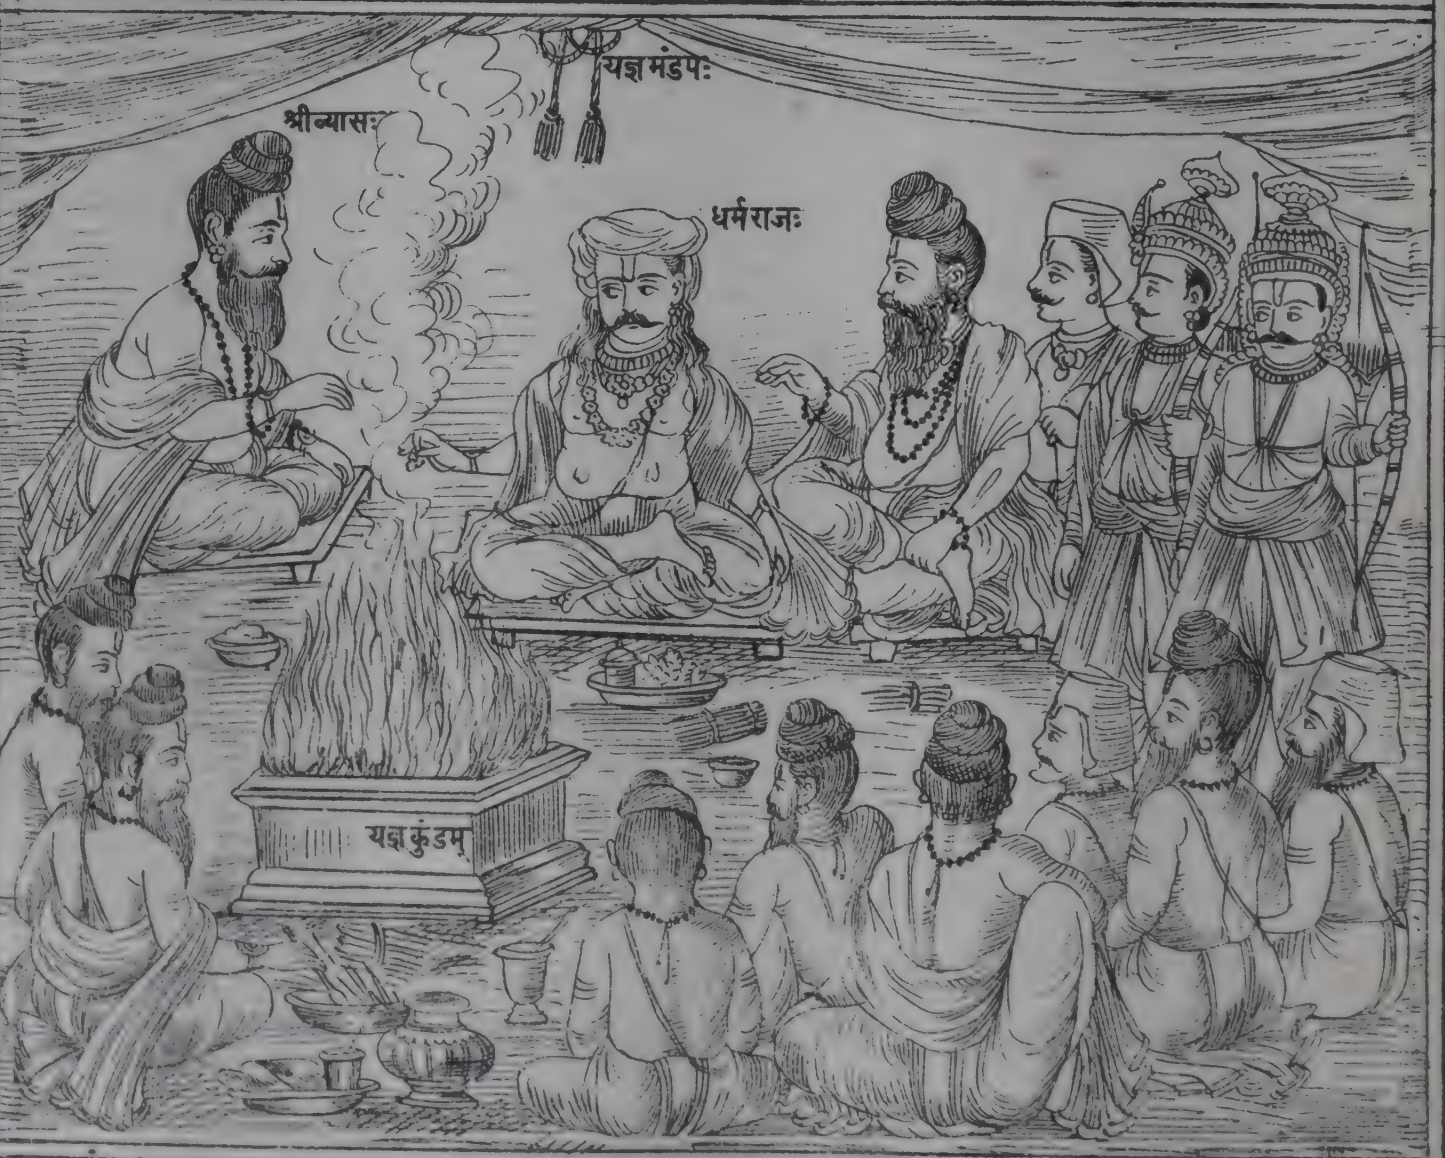 यज्ञमंडपः
श्रीव्यासः
धर्मराजः
यज्ञकुंडम्